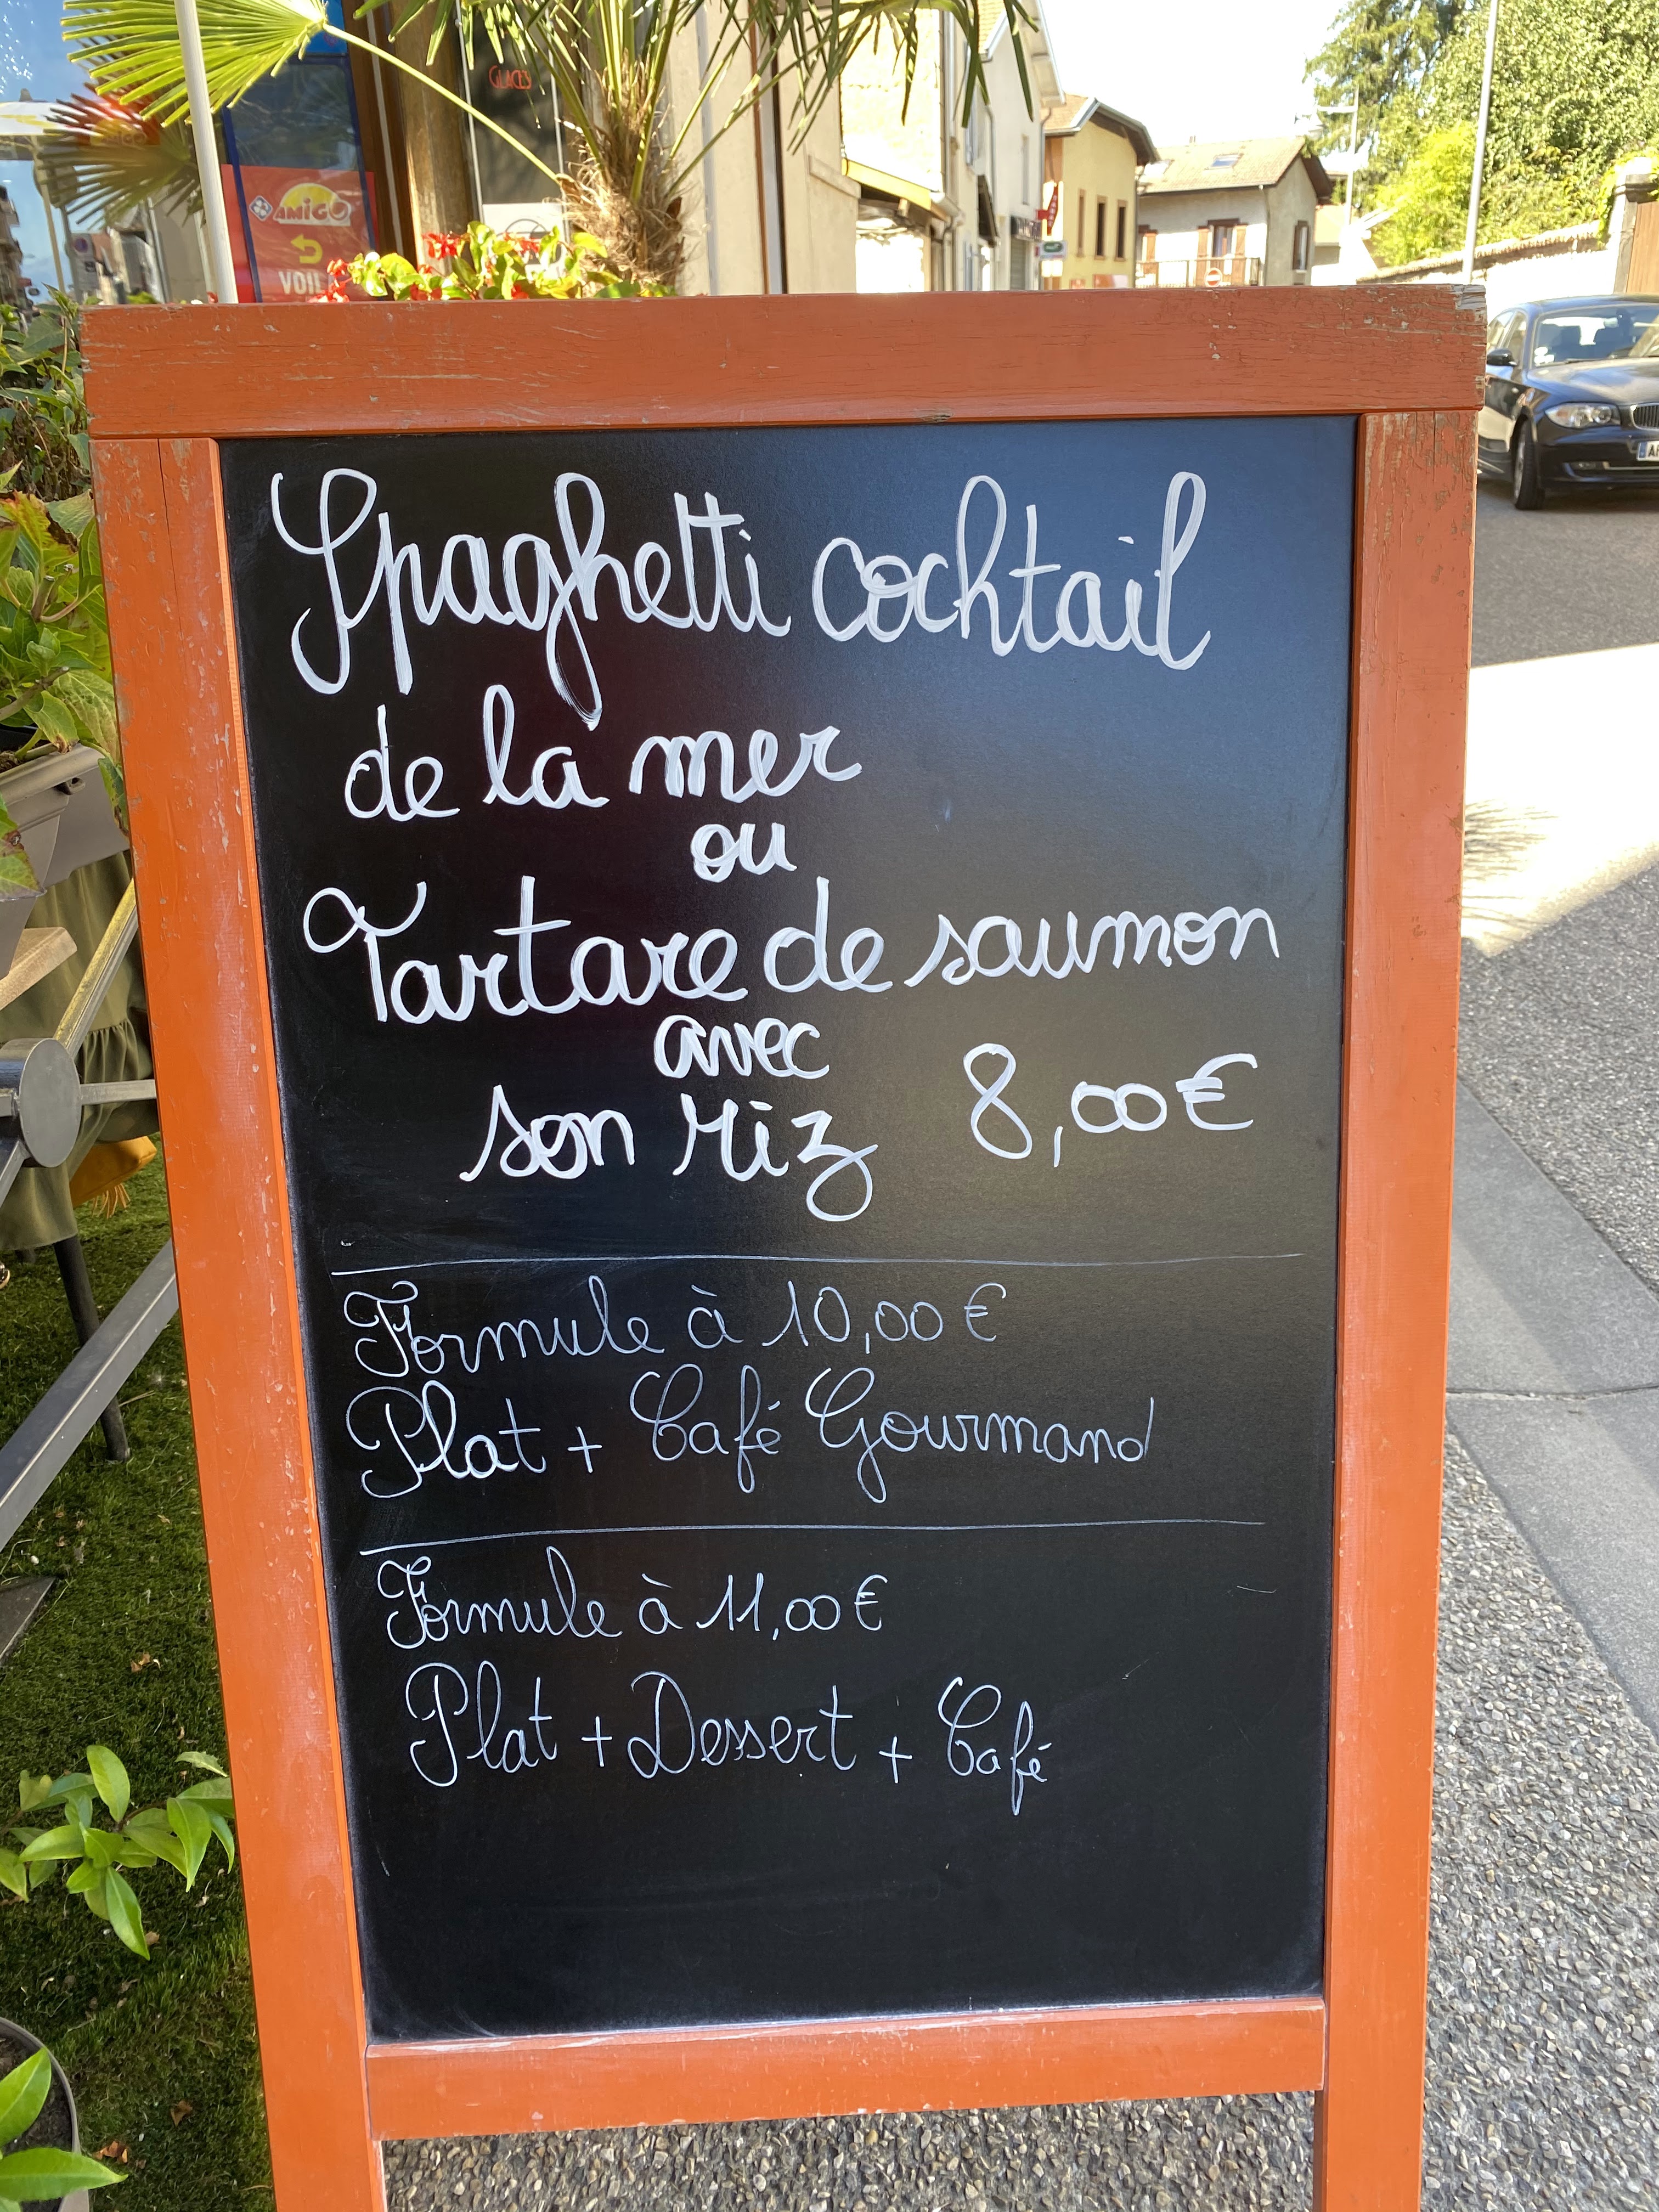 GLACES
AMIGO
Spaghetti cochtail
de la mer
ou
Tartare de saumon
avec
son riz 8,00€
Formule à 10,00€
Plat + Café Gourmand
Formule à 11,00€
Plat + Dessert + Café